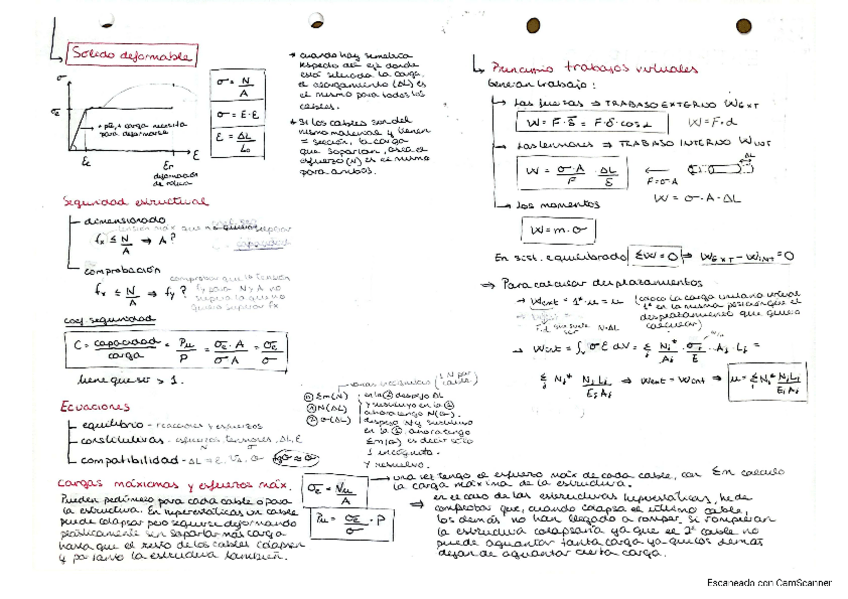 Solido deformable
σ
σ = N/A
σ = E·ε
ε = ΔL/L₀
+ pq, + carga necesita
para deformarse
εe
εr
ε
deformación
de rotura
→ cuando hay simetría
respecto del eje donde
está situada la carga,
el alargamiento (ΔL) es
el mismo para todos los
cables.
→ Si los cables son del
mismo material y tienen
= sección, la carga
que soportan, osea el
esfuerzo (N) es el mismo
para ambos.
Seguridad estructural
dimensionado
tensión máx que
quiero superar
fx ≤ N/A → A?
comprobación
comprobar que la tensión
fy para N y A no
supera la que no
quiero superar fx
fx ≤ N/A → fy?
coef. seguridad
C = capacidad/carga = Pu/P = σe·A/σA = σe/σ
tiene que ser > 1.
Ecuaciones
equilibrio - reacciones y esfuerzos
constitutivas - esfuerzos, tensores, ΔL, ε
compatibilidad - ΔL = ε.
varias incógnitas (1 N por cable)
① Σm(N)
① N(ΔL)
② σ(ΔL)
en la ② despejo ΔL
y sustituyo en la ①
ahora tengo N(σ).
despejo N y sustituyo
en la ①. ahora tengo
Σm(σ) es decir solo
1 incógnita.
Y resuelvo.
Cargas máximas y esfuerzos máx.
Pueden pedírnoslo para cada cable o para
la estructura. En hiperestáticas un cable
puede colapsar pero seguirse deformando
plásticamente sin soportar más carga
hasta que el resto de los cables colapsen
y por tanto la estructura también.
σe = Nu/A
Pu = σe/σ · P
→ una vez tengo el esfuerzo máx de cada cable, con Σm calculo
la carga máxima de la estructura.
⇒ en el caso de las estructuras hiperestáticas, he de
comprobar que, cuando colapsa el último cable,
los demás no han llegado a romper. Si rompieran
la estructura colapsaría ya que el 2º cable no
puede aguantar tanta carga ya que los demás
dejan de aguantar cierta carga.
Principio trabajos virtuales
Generan trabajo:
→ Las fuerzas ⇒ TRABAJO EXTERNO WEXT
W = F·δ = F·δ·cosα
W = F·d
→ Las tensiones ⇒ TRABAJO INTERNO WINT
W = σ·A/F · ΔL/δ
F = σ·A
ΔL
W = σ·A·ΔL
→ Los momentos
W = m·σ
En sist. equilibrado ΣW = 0 ⇒ WEXT - WINT = 0
⇒ Para calcular desplazamientos
→ Wext = 1*·u = u (coloco la carga unitaria virtual
1* en la misma posición que el
desplazamiento que quiero
calcular)
→ Wint = ∫v σ ε dV = Σi Ni*/Ai · σi/Ei · Ai · Li =
Σi Ni* Ni Li/Ei Ai ⇒ Wext = Wint ⇒ u = Σi Ni* Ni Li/Ei Ai
Escaneado con CamScanner